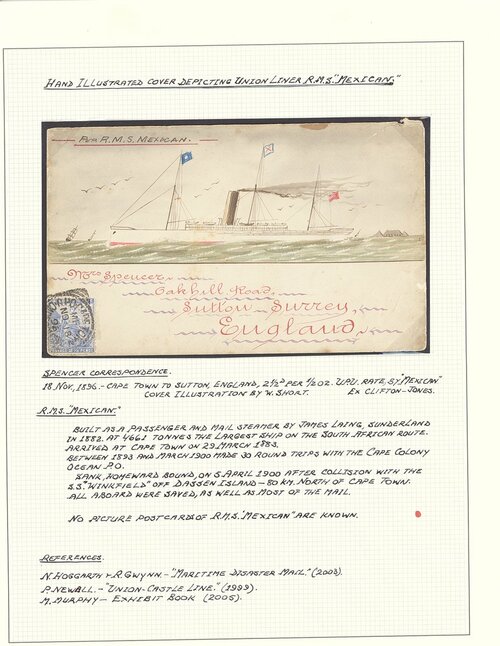 HAND ILLUSTRATED COVER DEPICTING UNION LINER R.M.S. "MEXICAN."
PER R.M.S. MEXICAN.
Mrs Spencer,
Oakhill Road,
Sutton Surrey,
England,
SPENCER CORRESPONDENCE.
18 NOV, 1896. - CAPE TOWN TO SUTTON, ENGLAND, 2½d PER ½ OZ. U.P.U. RATE, BY "MEXICAN"
COVER ILLUSTRATION BY W. SHORT. EX CLIFTON-JONES.
R.M.S. "MEXICAN."
BUILT AS A PASSENGER AND MAIL STEAMER BY JAMES LAING, SUNDERLAND
IN 1882. AT 4661 TONNES THE LARGEST SHIP ON THE SOUTH AFRICAN ROUTE.
ARRIVED AT CAPE TOWN ON 29 MARCH 1883.
BETWEEN 1893 AND MARCH 1900 MADE 30 ROUND TRIPS WITH THE CAPE COLONY
OCEAN P.O.
SANK, HOMEWARD BOUND, ON 5 APRIL 1900 AFTER COLLISION WITH THE
S.S. "WINKFIELD" OFF DASSEN ISLAND - 80 KM. NORTH OF CAPE TOWN.
ALL ABOARD WERE SAVED, AS WELL AS MOST OF THE MAIL.
NO PICTURE POSTCARDS OF R.M.S. "MEXICAN" ARE KNOWN.
REFERENCES.
N. HOGGARTH & R. GWYNN. - "MARITIME DISASTER MAIL." (2003).
P. NEWALL. - "UNION-CASTLE LINE." (1999).
M. MURPHY - EXHIBIT BOOK (2005).